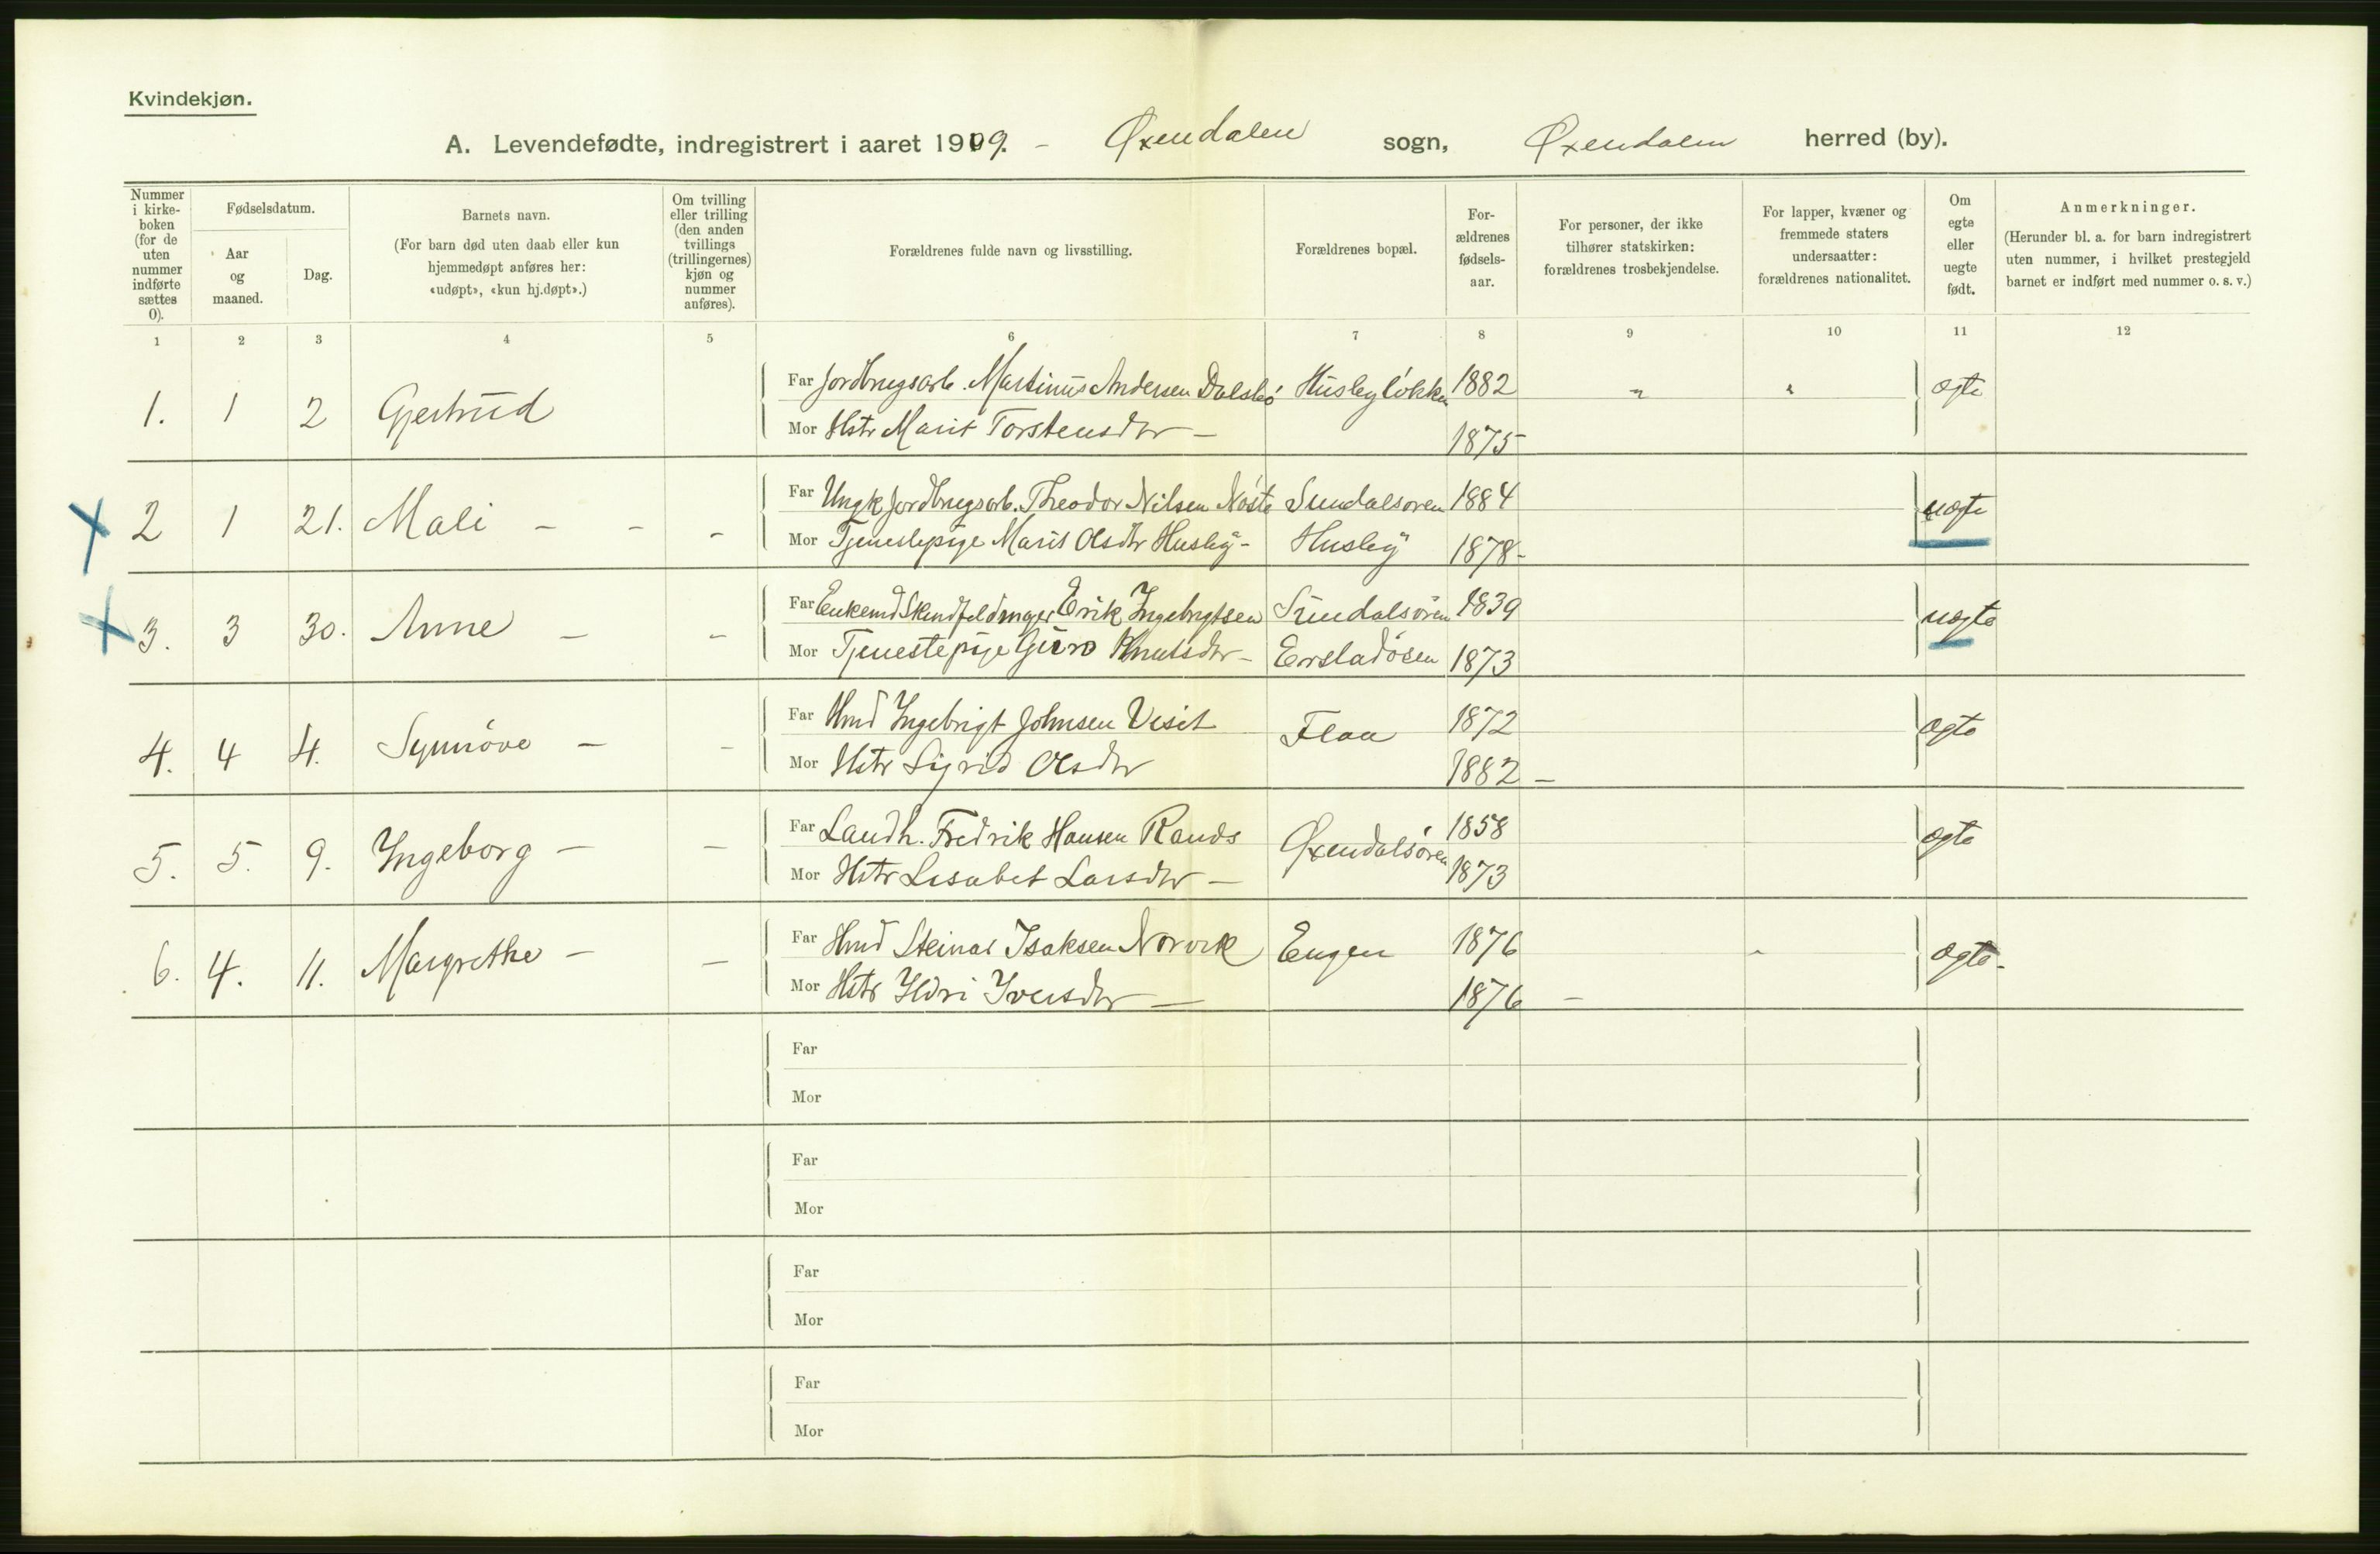 Kvindekjøn.
A. Levendefødte, indregistrert i aaret 1909. - Øxendalen sogn, Øxendalen herred (by).
Nummer i kirke-boken (for de uten nummer indførte sættes 0).
Fødselsdatum.
Aar og maaned.
Dag.
Barnets navn.
(For barn død uten daab eller kun hjemmedøpt anføres her: «udøpt», «kun hj.døpt».)
Om tvilling eller trilling (den anden tvillings (trillingernes) kjøn og nummer anføres).
Forældrenes fulde navn og livsstilling.
Forældrenes bopæl.
For-ældrenes fødsels-aar.
For personer, der ikke tilhører statskirken: forældrenes trosbekjendelse.
For lapper, kvæner og fremmede staters undersaatter: forældrenes nationalitet.
Om egte eller uegte født.
Anmerkninger.
(Herunder bl. a. for barn indregistrert uten nummer, i hvilket prestegjeld barnet er indført med nummer o. s. v.)
1 2 3 4 5 6 7 8 9 10 11 12
1. 1 2 Gjertrud Far Jordbrugsarb. Martinus Andersen Dalsbö Husbylökken 1882 " " ægte
Mor Hstr Marit Torstensdtr - 1875
X 2 1 21. Mali - - - Far Ungk Jordbrugsarb. Theodor Nilsen Nöste Sundalsøren 1884 uægte
Mor Tjenestepige Marit Olsdtr Husby - Husby 1878 -
X 3. 3 30. Anne - - Far Enkemd Erik Ingebrigtsen Sundalsøren 1839 uægte
Mor Tjenestepige Guro Knutsdtr - 1873
4. 4 4. Synnöve - - Far Hmd Ingebrigt Johnsen Flaa 1872 ægte
Mor Hstr Sigrid Olsdtr 1882 -
5. 5. 9. Ingeborg - - Far Landh. Fredrik Hansen Rands Øxendalsøren 1858 ægte
Mor Hstr Lisabet Larsdtr - 1873
6. 4. 11. Margrethe - - Far Hmd Steinar Isaksen Norvik Engen 1876 ægte -
Mor Hstr Ildri Iversdtr - 1876 -
Far
Mor
Far
Mor
Far
Mor
Far
Mor